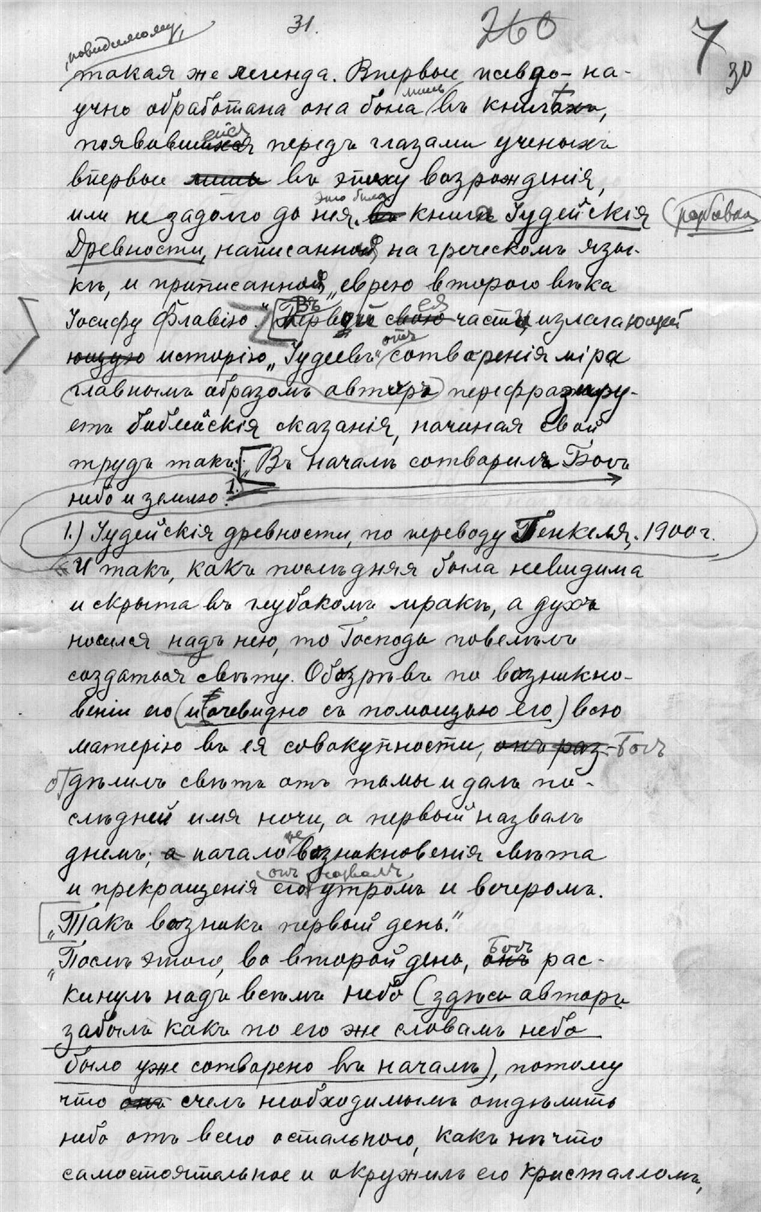 31.
260
7
30
повидимому,
такая же легенда. Впервые псевдо-на-
лишь
учно обработана она была въ книгѣ,
появившейся передъ глазами ученыхъ
впервые лишь въ эпоху возрожденія,
это была
или не задолго до нея. въ книга Іудейскія
Древности, написанной на греческомъ язы-
кѣ, и приписанной, еврею второго вѣка
Іосифу Флавію. Въ первой своей ея части, излагающей
ющую исторію „Іудеевъ отъ сотворенія міра
главнымъ образомъ авторъ перефразиру-
етъ библейскія сказанія, начиная свой
трудъ такъ: „Въ началѣ сотворилъ Богъ
небо и землю. 1.
1.) Іудейскія древности, по переводу Генкеля. 1900 г.
„И такъ, какъ послѣдняя была невидима
и скрыта въ глубокомъ мракѣ, а духъ
носился надъ нею, то Господь повелѣлъ
создаться свѣту. Обозрѣвъ по возникно-
веніи его (и очевидно съ помощью его) всю
матерію въ ея совокупности, онъ раз- Богъ
отдѣлилъ свѣтъ отъ тьмы и далъ по-
слѣдней имя ночи, а первый назвалъ
днемъ; а начало возникновенія свѣта
онъ назвалъ
и прекращенія его утромъ и вечеромъ.
„Такъ возникъ первый день."
Богъ
„Послѣ этого, во второй день, онъ рас-
кинулъ надъ всѣмъ небо (здѣсь авторъ
забылъ какъ по его же словамъ небо
было уже сотворено въ началѣ), потому
что онъ счелъ необходимымъ отдѣлить
небо отъ всего остального, какъ нѣчто
самостоятельное и окружилъ его кристалломъ,